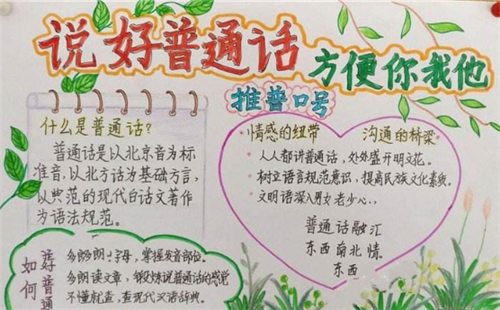 说好普通话
方便你我他
推普口号
什么是普通话?
普通话是以北京音为标
准音,以北方话为基础方言,
以典范的现代白话文著作
为语法规范。
·情感的纽带 沟通的桥梁·
·人人都讲普通话,处处盛开明花。
·树立语言规范意识,提高民族文化素养。
文明语深入男女老少心..
普通话融汇
东西南北情.
东西
如何
普通
多朗字母,掌握发音部位。
多朗读文章,锻炼说普通话的感觉
不懂就查,查现代汉语辞典。